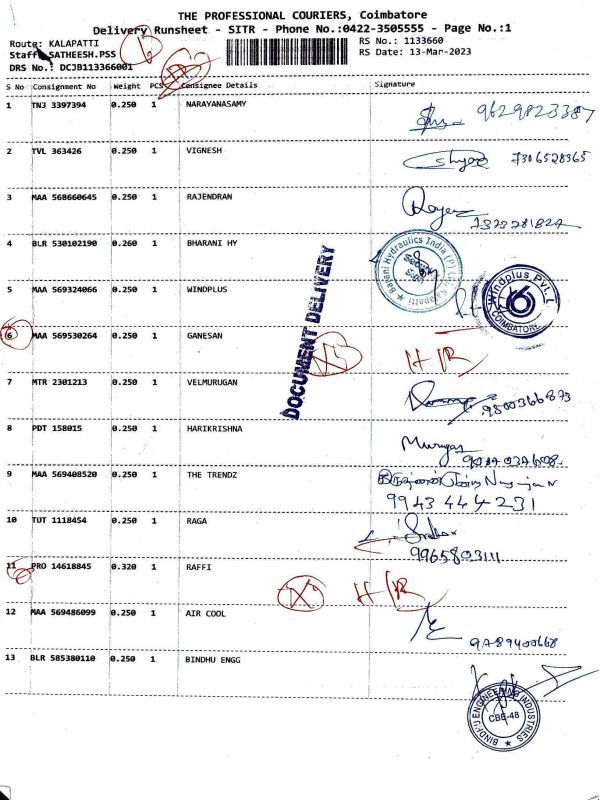 THE PROFESSIONAL COURIERS, Coimbatore
Delivery Runsheet - SITR - Phone No.:0422-3505555 - Page No.:1
Route: KALAPATTI RS No.: 1133660
Staff: SATHEESH.PSS RS Date: 13-Mar-2023
DRS No.: DCJB113366001
S No Consignment No Weight PCS Consignee Details Signature
1 TNJ 3397394 0.250 1 NARAYANASAMY 9629823387
2 TVL 363426 0.250 1 VIGNESH 7306528365
3 MAA 568660645 0.250 1 RAJENDRAN
4 BLR 530102190 0.260 1 BHARANI HY
DOCUMENT DELIVERY
5 MAA 569324066 0.250 1 WINDPLUS
Windplus Pvt. L
COIMBATORE
6 MAA 569530264 0.250 1 GANESAN
7 MTR 2301213 0.250 1 VELMURUGAN 9800366873
8 PDT 158015 0.250 1 HARIKRISHNA
Murugas
9 MAA 569408520 0.250 1 THE TRENDZ
9943444231
10 TUT 1118454 0.250 1 RAGA
9965803111
11 PRO 14618845 0.320 1 RAFFI
12 MAA 569486099 0.250 1 AIR COOL
9789400668
13 BLR 585380110 0.250 1 BINDHU ENGG
BINDHU ENGINEERING INDUSTRIES
CBE-48